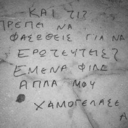 ΚΑΙ ΤΙ?
ΠΡΕΠΕΙ ΝΑ
ΦΑΣΩΘΕΙΣ ΓΙΑ ΝΑ
ΕΡΩΤΕΥΤΗΣ?
ΕΜΕΝΑ ΦΙΛΕ
ΑΠΛΑ ΜΟΥ
ΧΑΜΟΓΕΛΑΣΕ